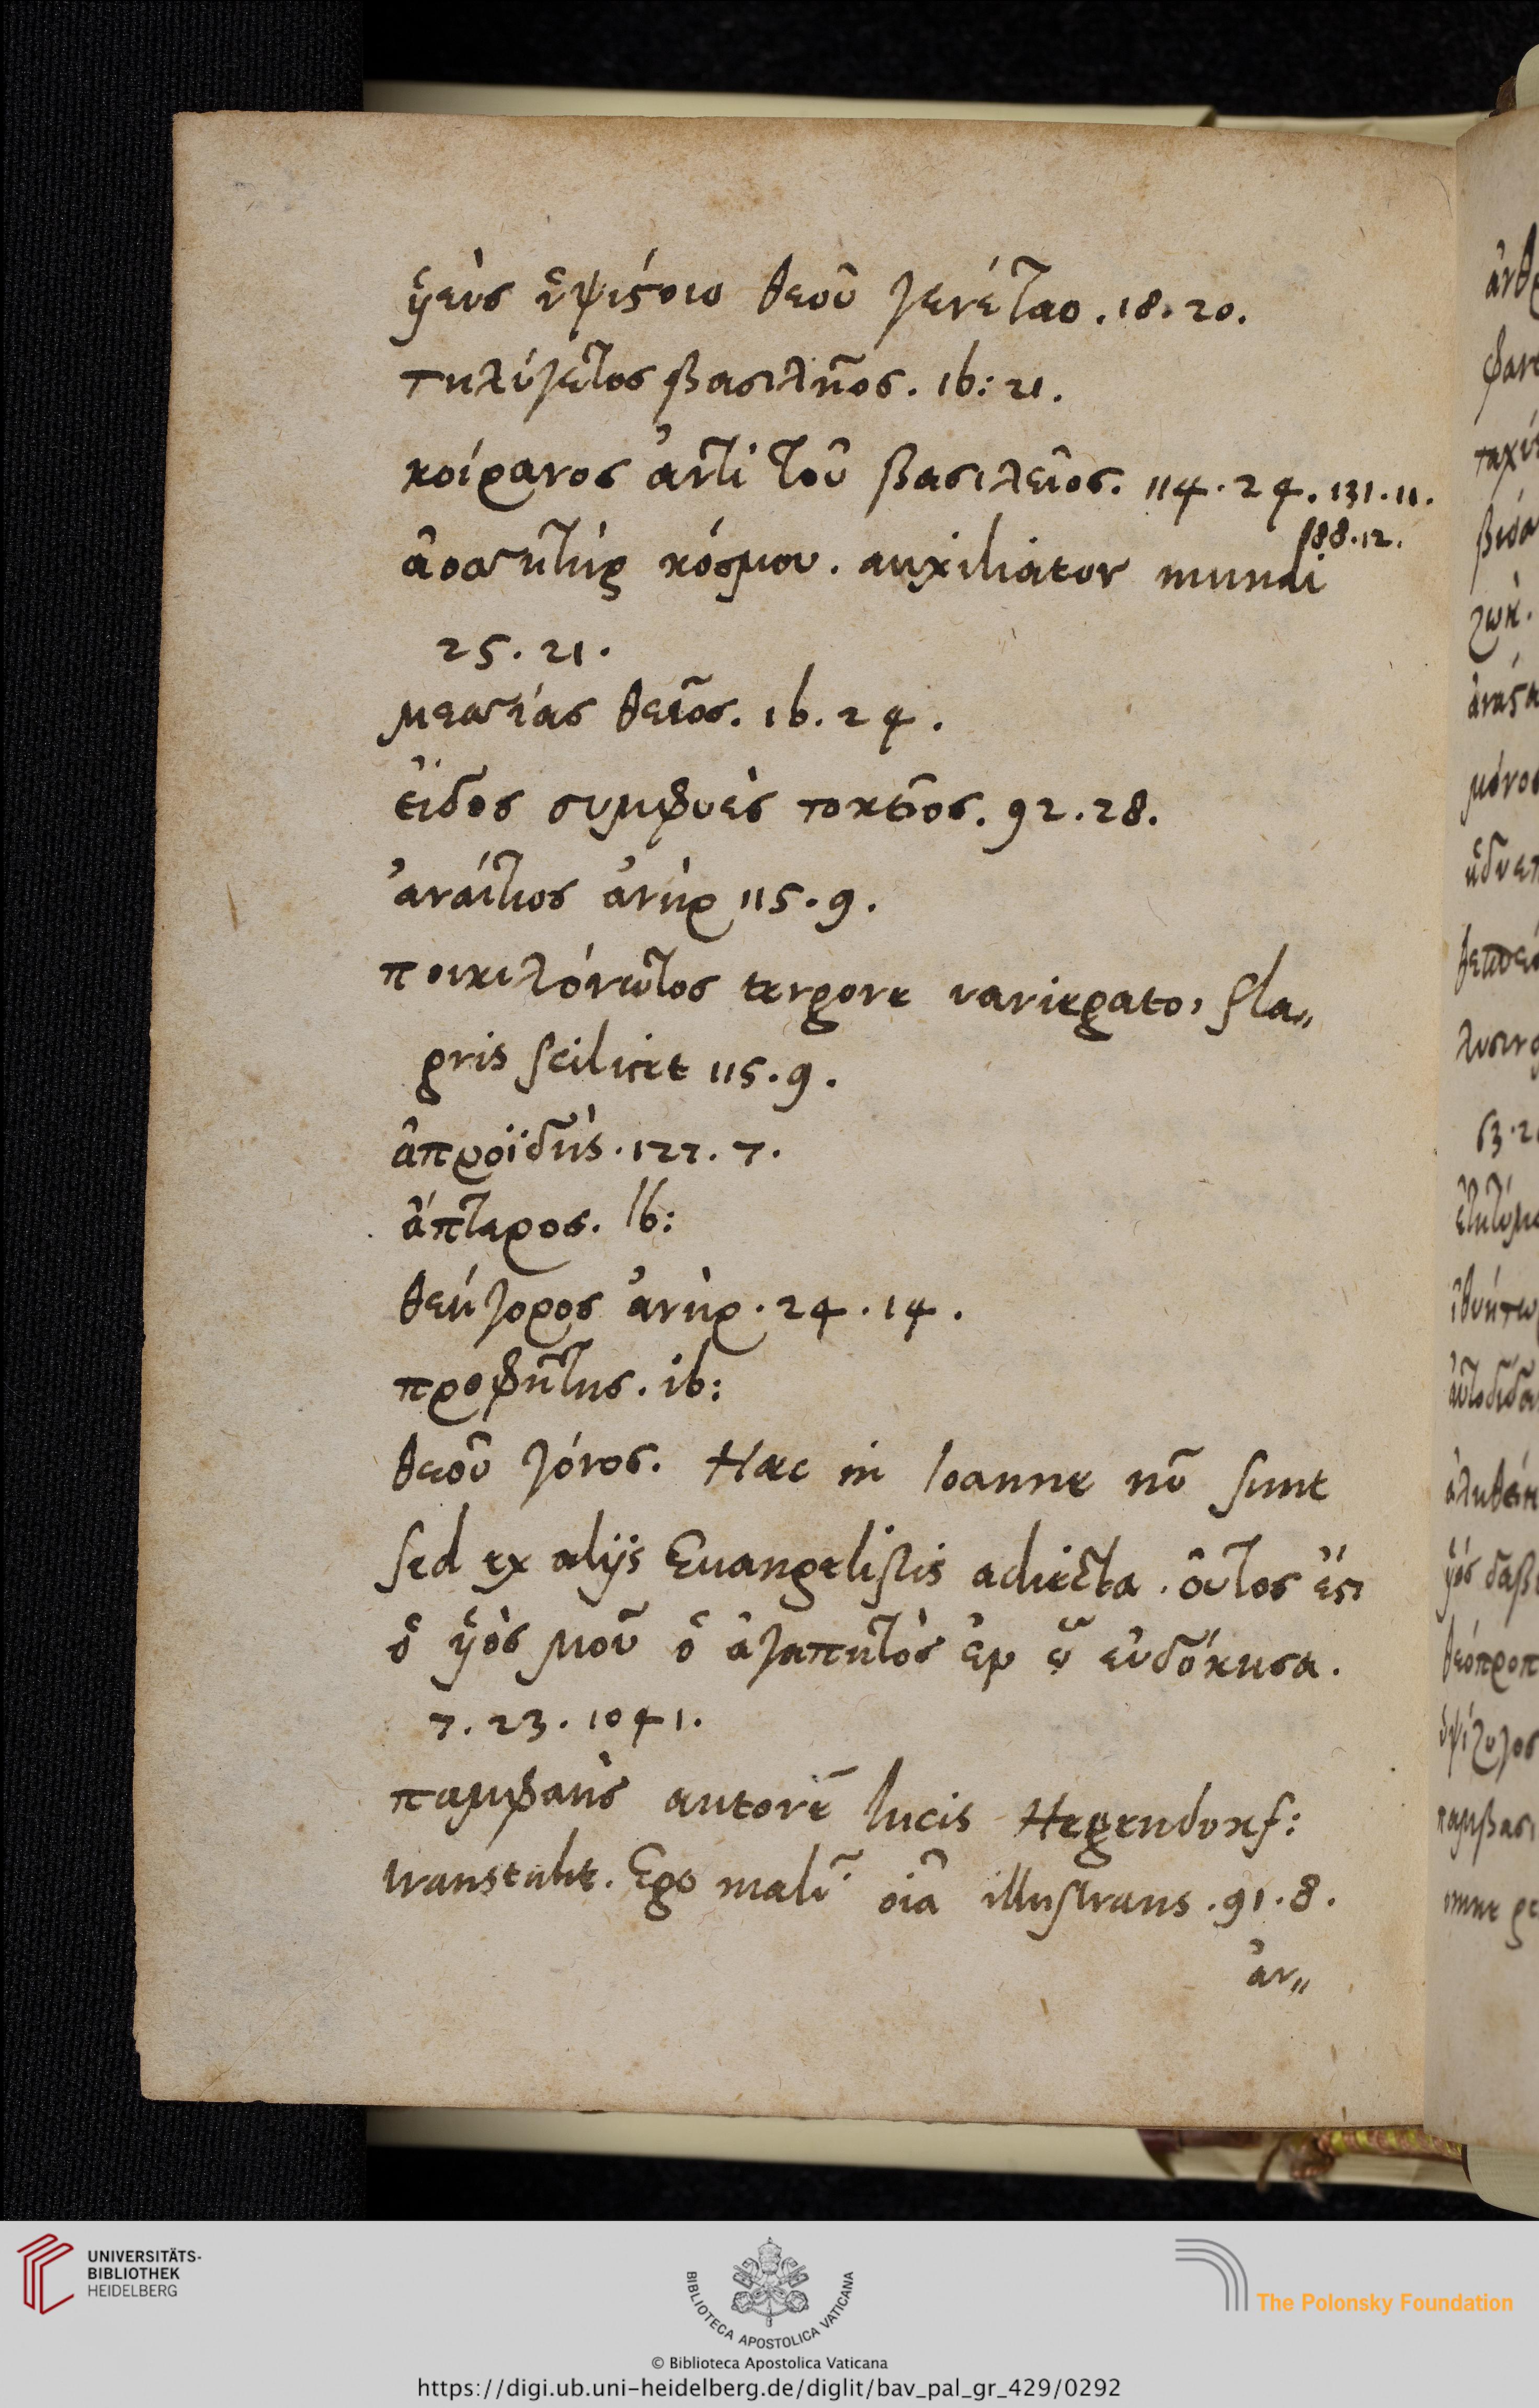 ὑϊεὺς ὑψίϛοιο θεοῦ γενέταο. 18. 20.
τηλύγετος βασιλῆος. ib: 21.
κοίρανος ἀντὶ τοῦ βασιλεῖος. 114. 24. 131. 11.
188. 12.
ἀοσσητὴρ κόσμου. auxiliator mundi
25. 21.
μεσσίας θεῖος. ib. 24.
εἶδος συμφυὲς τοκῆος. 92. 28.
ἀναίτιος ἀνὴρ 115. 9.
ποικιλόνωτος tergore variegato, fla„
gris scilicet 115. 9.
ἀπροϊδὴς. 127. 7.
ἄπτερος. Ib:
θεήγορος ἀνὴρ. 24. 14.
προφῆτης. ib:
θεοῦ γόνος. Haec in Ioanne nō sunt
sed ex alijs Euangelistis adiecta. οὗτος ἐϛι
ὁ ὑϊὸς μοῦ ὁ ἀγαπητὸς ἐν ᾧ εὐδόκησα.
7. 23. 1041.
παμφαὴς autorē lucis Hegendorf:
transtulit. Ego malī oīa illustrans. 91. 8.
ἀν„
ἀνθ
φαν
ταχύ
ζωή.
63. 2
UNIVERSITÄTS-
BIBLIOTHEK
HEIDELBERG
BIBLIOTECA APOSTOLICA VATICANA
The Polonsky Foundation
© Biblioteca Apostolica Vaticana
https://digi.ub.uni-heidelberg.de/diglit/bav_pal_gr_429/0292